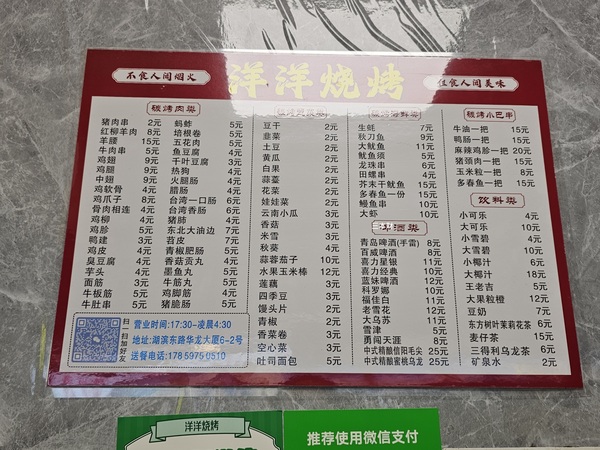 不食人间烟火
洋洋烧烤
但食人间美味
碳烤肉类
猪肉串 2元
红柳羊肉 8元
羊腰 15元
牛肉串 5元
鸡翅 9元
鸡腿 9元
中翅 9元
鸡软骨 4元
鸡爪子 8元
骨肉相连 4元
鸡柳 4元
鸡胗 5元
鸭建 3元
鸡皮 4元
臭豆腐 4元
芋头 4元
面筋 3元
牛板筋 5元
牛肚串 5元
蚂蚱 5元
培根卷 5元
五花肉 5元
鱼豆腐 4元
千叶豆腐 3元
热狗 4元
火腿肠 4元
腊肠 4元
台湾一口肠 6元
台湾香肠 6元
猪肺 4元
东北大油边 7元
苕皮 7元
青椒肥肠 5元
香菇贡丸 4元
墨鱼丸 5元
牛筋丸 5元
鸡脚筋 4元
猪脆肠 5元
豆干 2元
韭菜 2元
土豆 2元
黄瓜 2元
白果 2元
蒜薹 2元
花菜 2元
娃娃菜 2元
云南小瓜 3元
香菇 3元
米雪 3元
秋葵 4元
蒜蓉茄子 10元
水果玉米棒 12元
莲藕 3元
四季豆 3元
馒头片 2元
青椒 2元
香菜卷 3元
空心菜 3元
吐司面包 5元
生蚝 7元
秋刀鱼 9元
大鱿鱼 11元
鱿鱼须 5元
龙珠串 6元
田螺串 4元
芥末干鱿鱼 15元
多春鱼一份 15元
鳗鱼串 10元
大虾 10元
啤酒类
青岛啤酒(手雷) 8元
百威啤酒 8元
喜力星银 11元
喜力经典 10元
蓝妹啤酒 12元
科罗娜 10元
福佳白 11元
老雪花 12元
大乌苏 11元
雪津 5元
勇闯天涯 8元
中式精酿信阳毛尖 25元
中式精酿蜜桃乌龙 25元
碳烤小巴串
牛油一把 15元
鸭肠一把 15元
麻辣鸡胗一把 20元
猪颈肉一把 15元
玉米粒一把 8元
多春鱼一把 15元
饮料类
小可乐 4元
大可乐 10元
小雪碧 4元
大雪碧 10元
小椰汁 6元
大椰汁 18元
王老吉 5元
大果粒橙 12元
豆奶 7元
东方树叶茉莉花茶 6元
麦仔茶 15元
三得利乌龙茶 6元
矿泉水 2元
扫一扫加好友
营业时间:17:30-凌晨4:30
地址:湖滨东路华龙大厦6-2号
送餐电话:178 5975 0510
洋洋烧烤
推荐使用微信支付